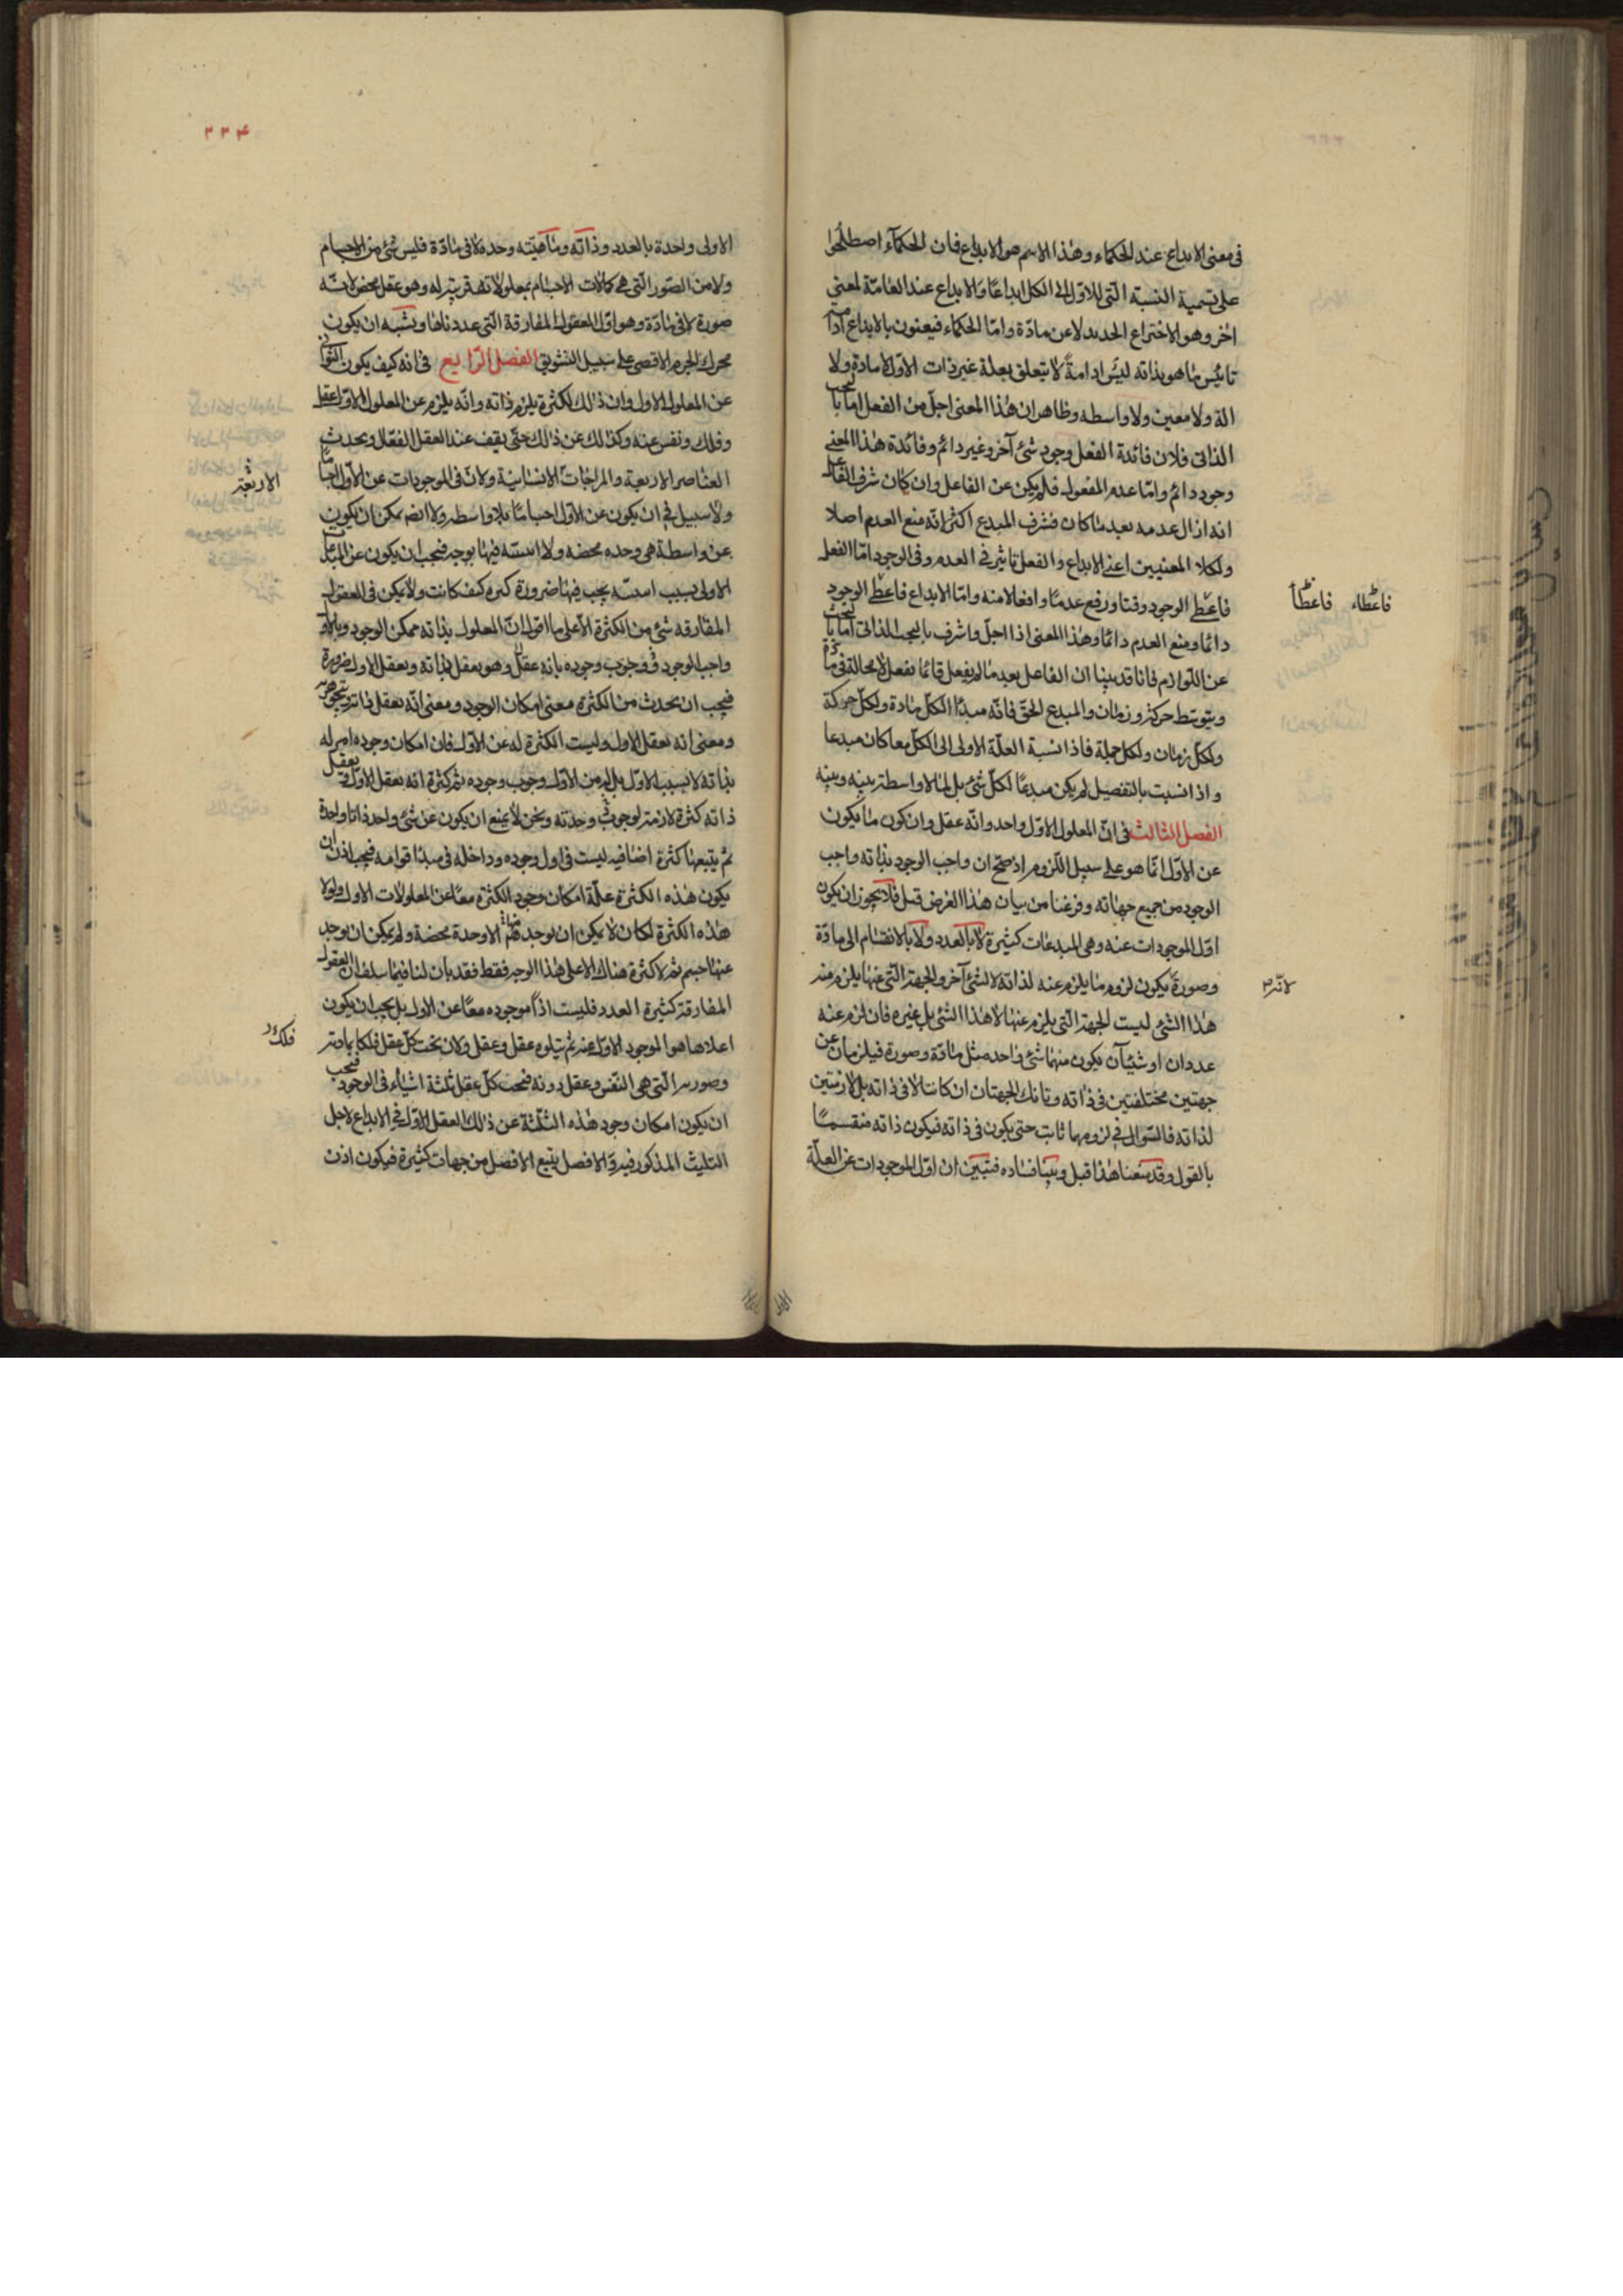 فى معنى الابداع عند الحكماء وهذا الاسم هو الابداع فان الحكمآء اصطلحوا
على تسمية النسبة التى للاول الى الكل ابداعًا والابداع عند العامّة لمعنى
اخر وهو الاختراع الجديد لا عن مادّة وامّا الحكماء فيعنون بالابداع ادامة
تأييس ما هو بذاته ليس ادامةً لا يتعلق بعلة غير ذات الاوّل لا مادة ولا
الة ولا معين ولا واسطه وظاهر ان هذا المعنى اجلّ من الفعل اما بالبحث
الذاتى فلان فائدة الفعل وجود شئ آخر وغير دائم وفائدة هذا المعنى
وجود دائم وامّا عدم المفعول فلم يكن عن الفاعل وان كان شرف الفاعل
انه ازال عدمه بعد ما كان فشرف المبدع اكثر انّه منع العدم اصلا
ولكلا المعنيين اعنى الابداع والفعل تاثير فى العدم وفى الوجود امّا الفعل
فاعطى الوجود وقتا ورفع عدمًا وافعالا منه وامّا الابداع فاعطى الوجود
دائمًا ومنع العدم دائمًا وهذا المعنى اذا اجلّ واشرف بالبحث الذاتى اما بالبحث
عن اللوازم فانا قد بينا ان الفاعل بعد ما لم يفعل قائمًا يفعل لا محالة فى مادة
ويتوسّط حركة وزمان والمبدع الحقّ فانّه مبدأ الكلّ مادة ولكلّ حركة
ولكلّ زمان ولكل جملة فاذا نسبة العلّة الاولى الى الكلّ معا كان مبدعا
واذا نسبت بالتفصيل لم يكن مبدعًا لكلّ شئ بل لما لا واسطة بينه وبينه
الفصل الثالث فى انّ المعلول الاوّل واحد وانّه عقل وان كون ما يكون
عن الاوّل انّما هو على سبيل اللزوم اذ صحّ ان واجب الوجود بذاته واجب
الوجود من جميع جهاته وفرغنا من بيان هذا الغرض قبل فلا يجوز ان يكون
اوّل الموجودات عنه وهى المبدعات كثيرة لا بالعدد ولا بالانقسام الى مادّة
وصورة يكون لزوم ما يلزم عنه لذاته لا لشئ آخر والجهة الّتى عنها يلزم منه
هذا الشئ ليست الجهة الّتى يلزم عنها لا هذا الشئ بل غيره فان لزم عنه
عددان او شيئان يكون منهما شئ واحد مثل مادّة وصورة فيلزمان عن
جهتين مختلفتين فى ذاته وتانك الجهتان ان كانتا لا فى ذاته بل لازمتين
لذاته فالسّوال فى لزومها ثابت حتى يكون فى ذاته فيكون ذاته منقسمًا
بالقول وقد منعنا هذا قبل وبيّنا فساده فتبيّن ان اوّل الموجودات عن العلّة
فاعطاء فاعطا
لانّه
٣٣٤
الاولى واحدة بالعدد وذاته وماهيّته وحده لا فى مادّة فليس شئ من الاجسام
ولا من الصّور الّتى هى كمالات الاجسام بمعلولاته قريبة له وهو عقل محض لانّه
صورة لا فى مادّة وهو اوّل العقول المفارقة الّتى عددناها ويشبه ان يكون
محرك الجرم الاقصى على سبيل التشويق الفصل الرّابع فى انه كيف يكون الثوانى
عن المعلول الاول وان ذلك لكثرة يلزم ذاته وانّه يلزم عن المعلول الاوّل عقل
وفلك ونفس عنه وكذلك عن ذلك حتّى يقف عند العقل الفعّال ويحدث
العناصر الاربعة والمزاجات الانسانيّة ولانّ فى الموجودات عن الاوّل اجساما
ولا سبيل فى ان يكون عن الاوّل اجسامًا بلا واسطه ولا ايضا يمكن ان يكون
عن واسطة هى وحده محضه ولا اثنينيّة فيها بوجه فيجب ان يكون عن المبدعات
الاولى بسبب اثنينيّة يجب فيها ضرورة كثرة كيف كانت ولا يمكن فى العقول
المفارقه شئ من الكثرة الّا على ما اقول انّ المعلول بذاته ممكن الوجود وبالاول
واجب الوجود ووجوب وجوده بانه عقل وهو يعقل بذاته ويعقل الاول ضرورة
فيجب ان يحدث من الكثرة معنى امكان الوجود ومعنى انّه يعقل ذاته ويتجوهر
ومعنى انه يعقل الاول وليست الكثرة له عن الاوّل فان امكان وجوده امر له
بذاته لا بسبب الاوّل بل له من الاوّل وجوب وجوده ثم كثرة انه يعقل الاوّل ويعقل
ذاته كثرة لازمة لوجوب وحدته ونحن لا نمنع ان يكون عن شئ واحد ذاتا واحدة
ثم يتبعها كثرة اضافيه ليست فى اول وجوده وداخله فى مبدا قوامه فيجب اذن ان
يكون هذه الكثرة علّة امكان وجود الكثرة معًا عن المعلولات الاول ولولا
هذه الكثرة لكان لا يمكن ان يوجد منها الا وحدة محضة ولم يمكن ان يوجد
عنها جسم ثم لا كثرة هناك الا على هذا الوجه فقط فقد بان لنا فيما سلف ان العقول
المفارقة كثيرة العدد فليست اذاً موجوده معًا عن الاول بل يجب ان يكون
اعلاها هو الموجود الاوّل عنه ثم يتلوه عقل وعقل ولان تحت كلّ عقل فلكا بمادته
وصورته الّتى هى النفس وعقل دونه فتحت كلّ عقل ثلثة اشياء فى الوجود فيجب
ان يكون امكان وجود هذه الثلثة عن ذلك العقل الاوّل فى الابداع لاجل
التثليث المذكور فيه والافضل يتبع الافضل من جهات كثيرة فيكون اذن
الاربعة
فلك